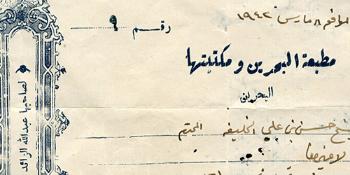 الموافق ٨ مارس ١٩٤٢
رقم ٩
مطبعة البحرين ومكتبتها
البحرين
لصاحبها عبدالله الزائد
حسن بن علي الخليفة المحترم